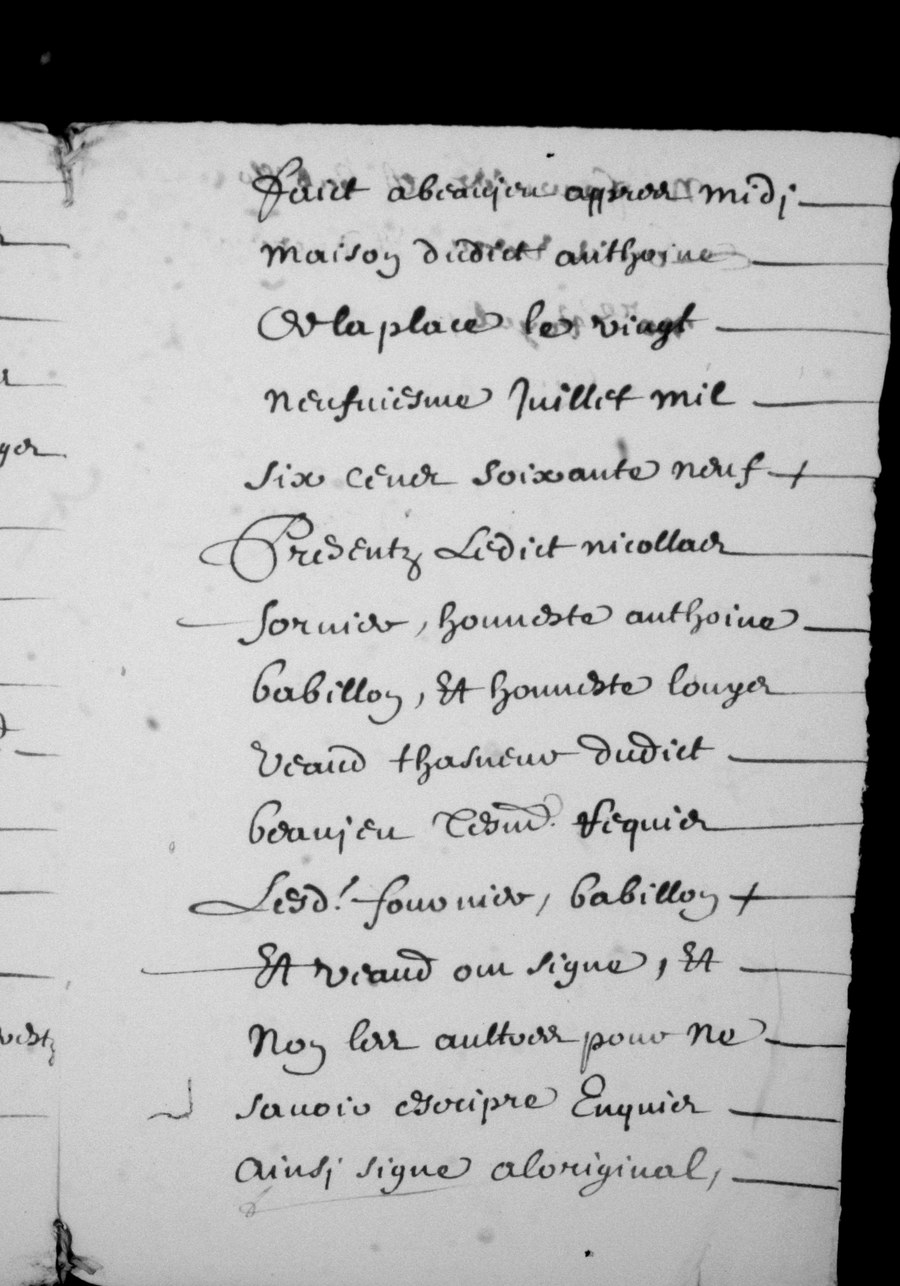 faict a beaujeu appres midj
maison dudict anthoine
De la place le vingt
neufviesme Juillet mil
six cens soixante neuf
Presentz Ledict nicollas
fornier, honneste anthoine
babillon, Et honneste louys
veaud thasneur dudict
beaujeu Tesm. requis
Lesd. fournier, babillon
Et veaud ont signe, Et
Non les aultres pour ne
savoir escripre Enquis
Ainsj signe aloriginal,